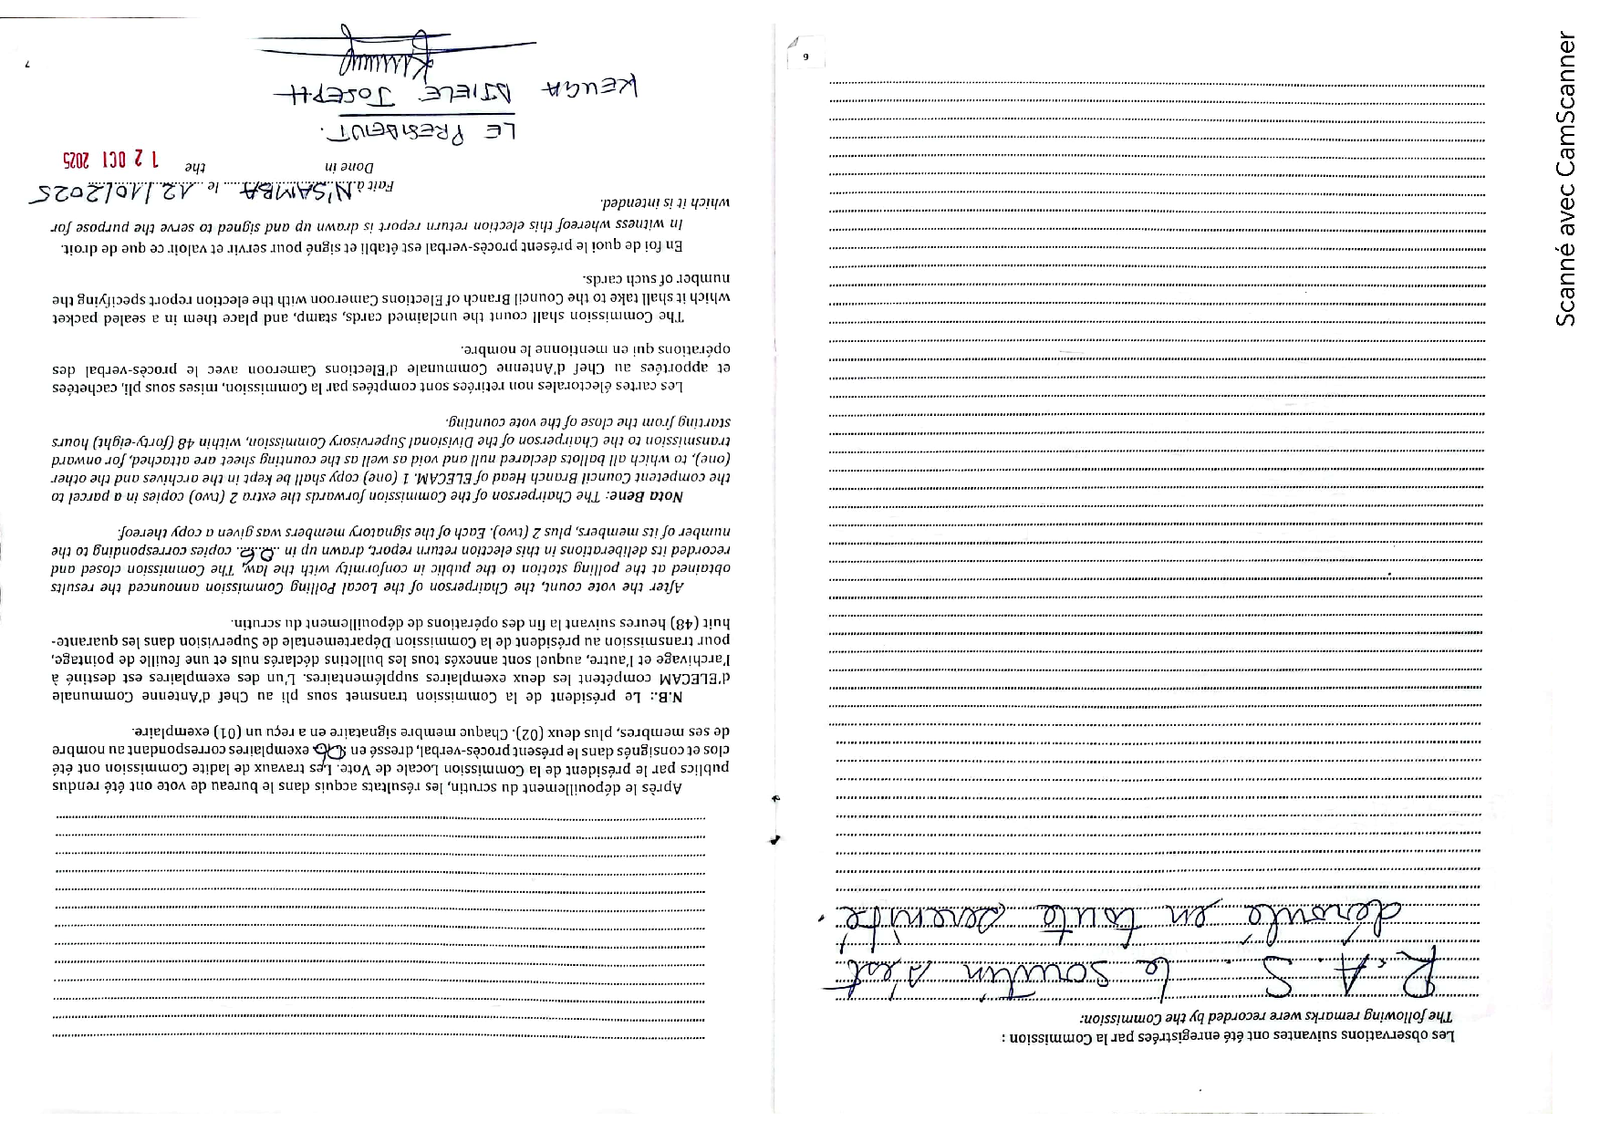 Les observations suivantes ont été enregistrées par la Commission :
The following remarks were recorded by the Commission:
R.A.S. le scrutin s'est
déroulé en toute sérénité.
6
Après le dépouillement du scrutin, les résultats acquis dans le bureau de vote ont été rendus
publics par le président de la Commission Locale de Vote. Les travaux de ladite Commission ont été
clos et consignés dans le présent procès-verbal, dressé en 06 exemplaires correspondant au nombre
de ses membres, plus deux (02). Chaque membre signataire en a reçu un (01) exemplaire.
N.B.: Le président de la Commission transmet sous pli au Chef d'Antenne Communale
d'ELECAM compétent les deux exemplaires supplémentaires. L'un des exemplaires est destiné à
l'archivage et l'autre, auquel sont annexés tous les bulletins déclarés nuls et une feuille de pointage,
pour transmission au président de la Commission Départementale de Supervision dans les quarante-
huit (48) heures suivant la fin des opérations de dépouillement du scrutin.
After the vote count, the Chairperson of the Local Polling Commission announced the results
obtained at the polling station to the public in conformity with the law. The Commission closed and
recorded its deliberations in this election return report, drawn up in 06 copies corresponding to the
number of its members, plus 2 (two). Each of the signatory members was given a copy thereof.
Nota Bene: The Chairperson of the Commission forwards the extra 2 (two) copies in a parcel to
the competent Council Branch Head of ELECAM. 1 (one) copy shall be kept in the archives and the other
(one), to which all ballots declared null and void as well as the counting sheet are attached, for onward
transmission to the Chairperson of the Divisional Supervisory Commission, within 48 (forty-eight) hours
starting from the close of the vote counting.
Les cartes électorales non retirées sont comptées par la Commission, mises sous pli, cachetées
et apportées au Chef d'Antenne Communale d'Elections Cameroon avec le procès-verbal des
opérations qui en mentionne le nombre.
The Commission shall count the unclaimed cards, stamp, and place them in a sealed packet
which it shall take to the Council Branch of Elections Cameroon with the election report specifying the
number of such cards.
En foi de quoi le présent procès-verbal est établi et signé pour servir et valoir ce que de droit.
In witness whereof this election return report is drawn up and signed to serve the purpose for
which it is intended.
Fait à N'SAMBA le 12/10/2025
Done in the 12 OCT 2025
LE PRESIDENT.
KENGA DTIELE JOSEPH
7
Scanné avec CamScanner